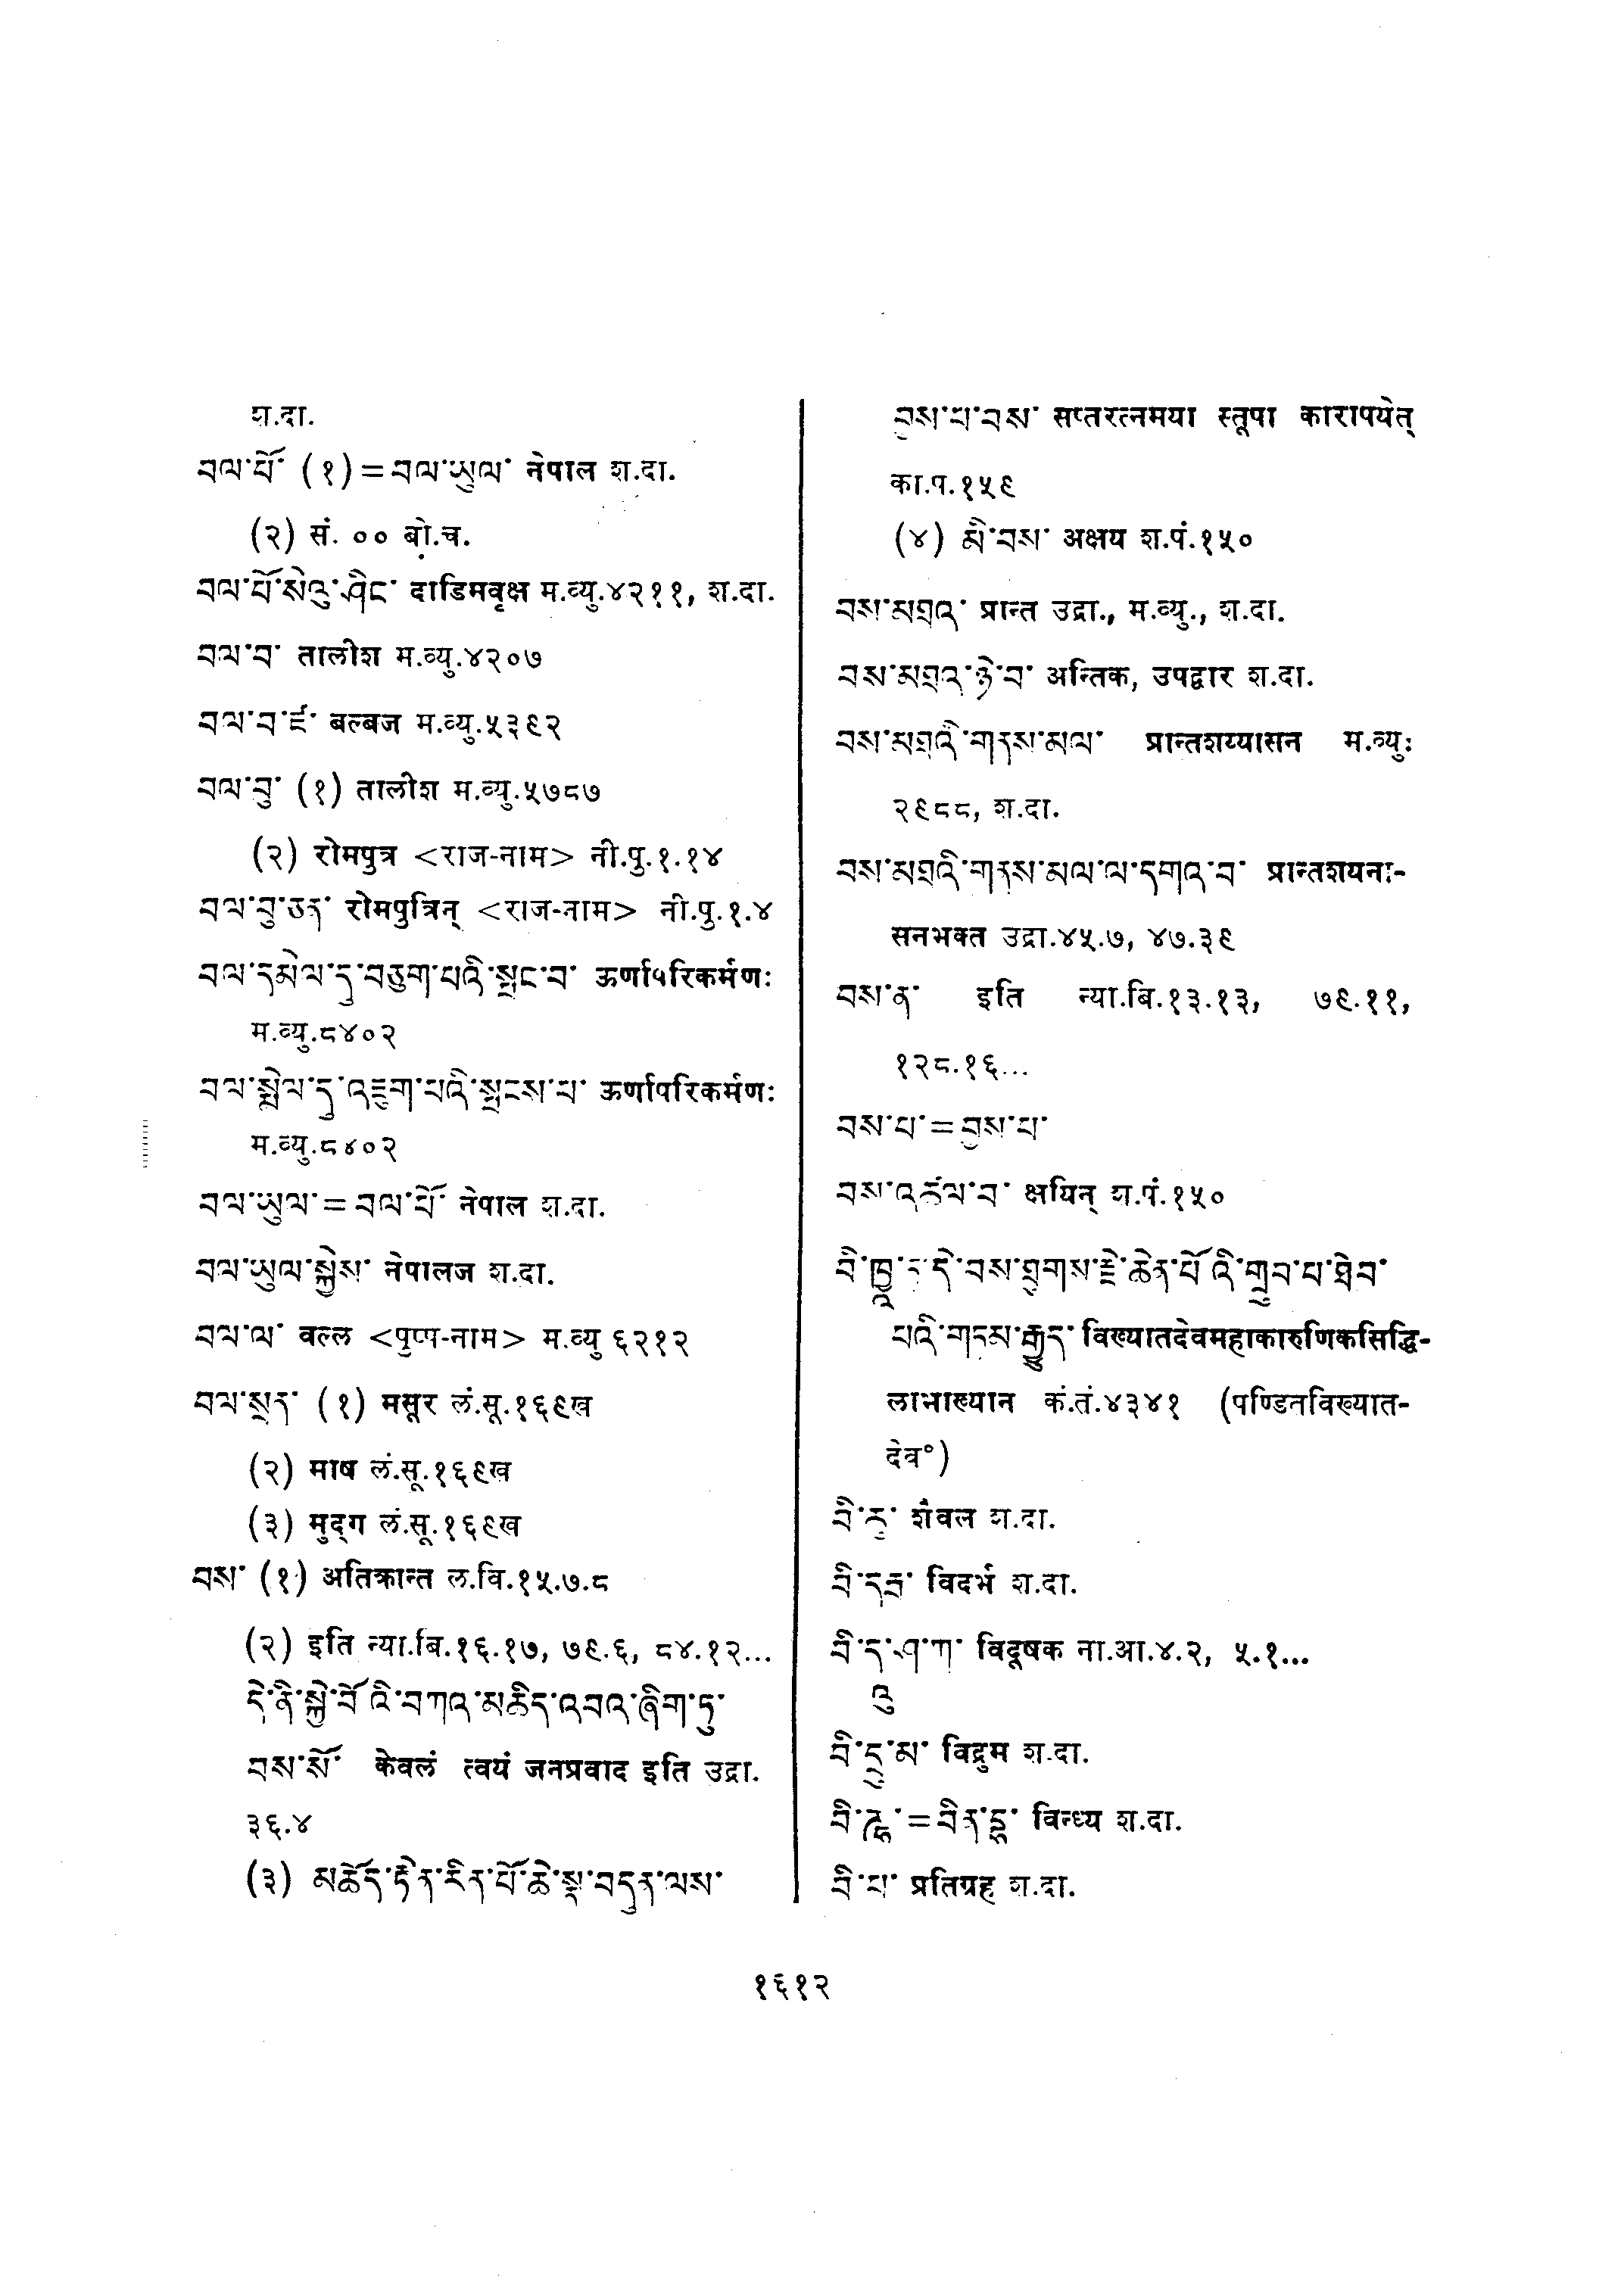 श.दा.
བལ་པོ་ (१) = བལ་ཡུལ་ नेपाल श.दा.
(२) सं. ०० बो.च.
བལ་པོ་སེའུ་ཤིང་ दाडिमवृक्ष म.व्यु.४२११, श.दा.
བལ་བ་ तालीश म.व्यु.४२०७
བལ་བ་ཛ་ बल्बज म.व्यु.५३९२
བལ་བུ་ (१) तालीश म.व्यु.५७८७
(२) रोमपुत्र <राज-नाम> नी.पु.१.१४
བལ་བུ་ཅན་ रोमपुत्रिन् <राज-नाम> नी.पु.१.४
བལ་དམེལ་དུ་བཅུག་པའི་སྤང་བ་ ऊर्णापरिकर्मणः
म.व्यु.८४०२
བལ་སྨེལ་དུ་འཇུག་པའི་སྤངས་པ་ ऊर्णापरिकर्मणः
म.व्यु.८४०२
བལ་ཡུལ་ = བལ་པོ་ नेपाल श.दा.
བལ་ཡུལ་སྐྱེས་ नेपालज श.दा.
བལ་ལ་ वल्ल <पुष्प-नाम> म.व्यु ६२१२
བལ་སྲན་ (१) मसूर लं.सू.१६९ख
(२) माष लं.सू.१६९ख
(३) मुद्ग लं.सू.१६९ख
བས་ (१) अतिक्रान्त ल.वि.१५.७.८
(२) इति न्या.बि.१६.१७, ७९.६, ८४.१२...
དེ་ནི་སྐྱེ་བོ་འི་བཀའ་མཆིད་འབའ་ཞིག་ཏུ་
བས་སོ་ केवलं त्वयं जनप्रवाद इति उद्रा.
३६.४
(३) མཆོད་རྟེན་རིན་པོ་ཆེ་སྣ་བདུན་ལས་
བྱས་པ་བས་ सप्तरत्नमया स्तूपा कारापयेत्
का.प.१५९
(४) མི་བས་ अक्षय श.पं.१५०
བས་མཐའ་ प्रान्त उद्रा., म.व्यु., श.दा.
བས་མཐའ་ཉེ་བ་ अन्तिक, उपद्वार श.दा.
བས་མཐའི་གནས་མལ་ प्रान्तशय्यासन म.व्युः
२९८८, श.दा.
བས་མཐའི་གནས་མལ་ལ་དགའ་བ་ प्रान्तशयनाः-
सनभक्त उद्रा.४५.७, ४७.३९
བས་ན་ इति न्या.बि.१३.१३, ७९.११,
१२८.१६...
བས་པ་ = བྱས་པ་
བས་འཚལ་བ་ क्षयिन् श.पं.१५०
བི་ཁྱཱ་ཏ་དེ་བས་ཐུགས་རྗེ་ཆེན་པོ་འི་གྲུབ་པ་ཐེབ་
པའི་གཏམ་རྒྱུད་ विख्यातदेवमहाकारुणिकसिद्धि-
लाभाख्यान कं.तं.४३४१ (पण्डितविख्यात-
देव°)
བི་དུ་ शैवल श.दा.
བི་དརྦ་ विदर्भ श.दा.
བི་དཱུ་ཥ་ཀ་ विदूषक ना.आ.४.२, ५.१...
བི་དྲུ་མ་ विद्रुम श.दा.
བི་ཎྜྷ་ = བིན་དྷ་ विन्ध्य श.दा.
བི་པ་ प्रतिग्रह श.दा.
१६१२